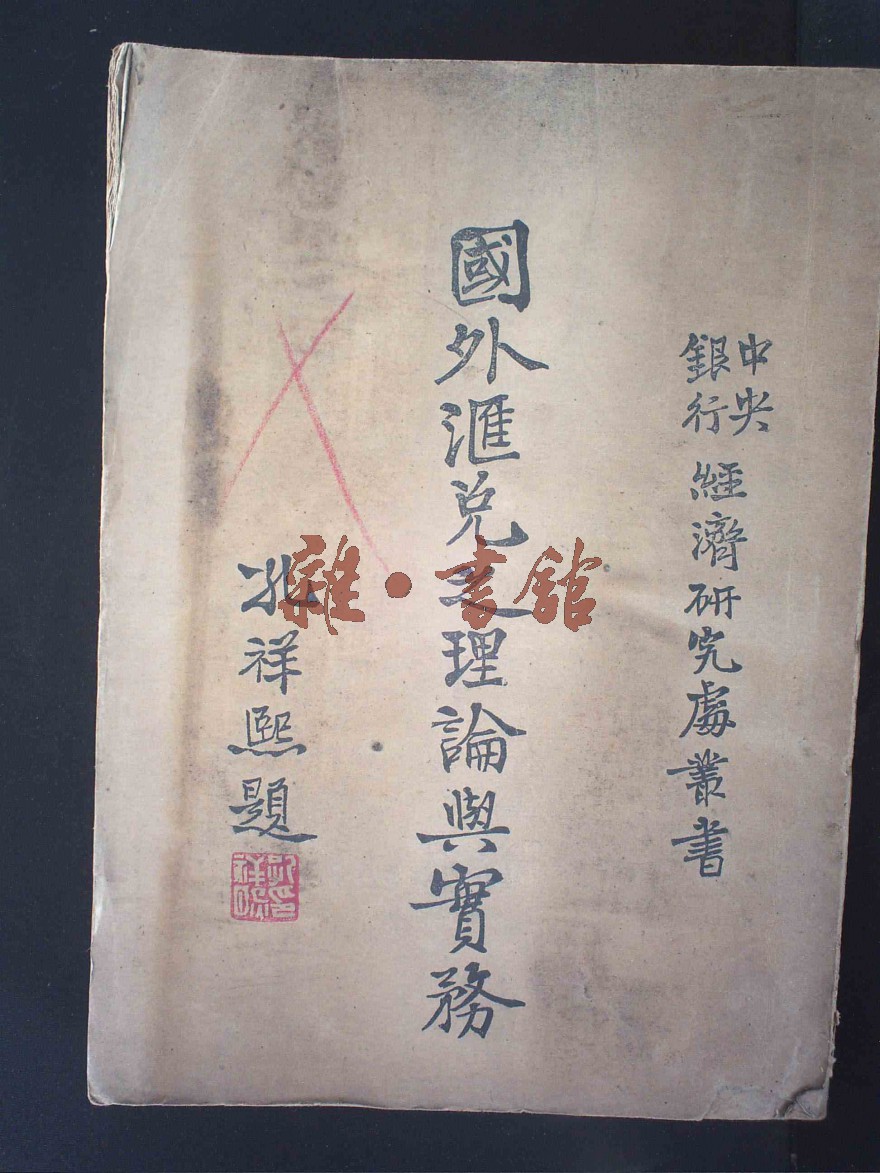 中央
銀行
經濟研究處叢書
國外滙兌之理論與實務
孔祥熙題
雜·書館